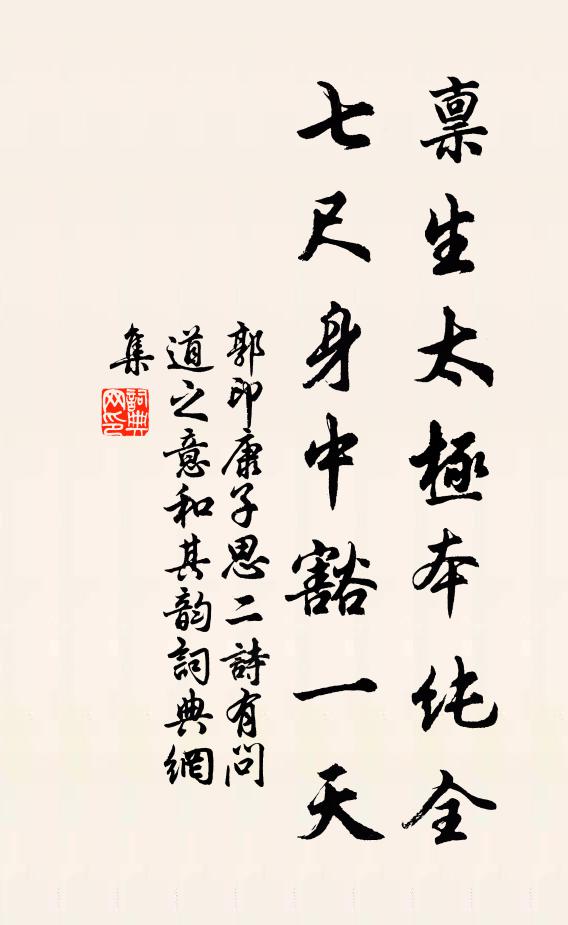 禀生太極本纯全
七尺身中豁一天
郭印康子思二詩有問
道之意和其韵詞典網
集
詞典网印